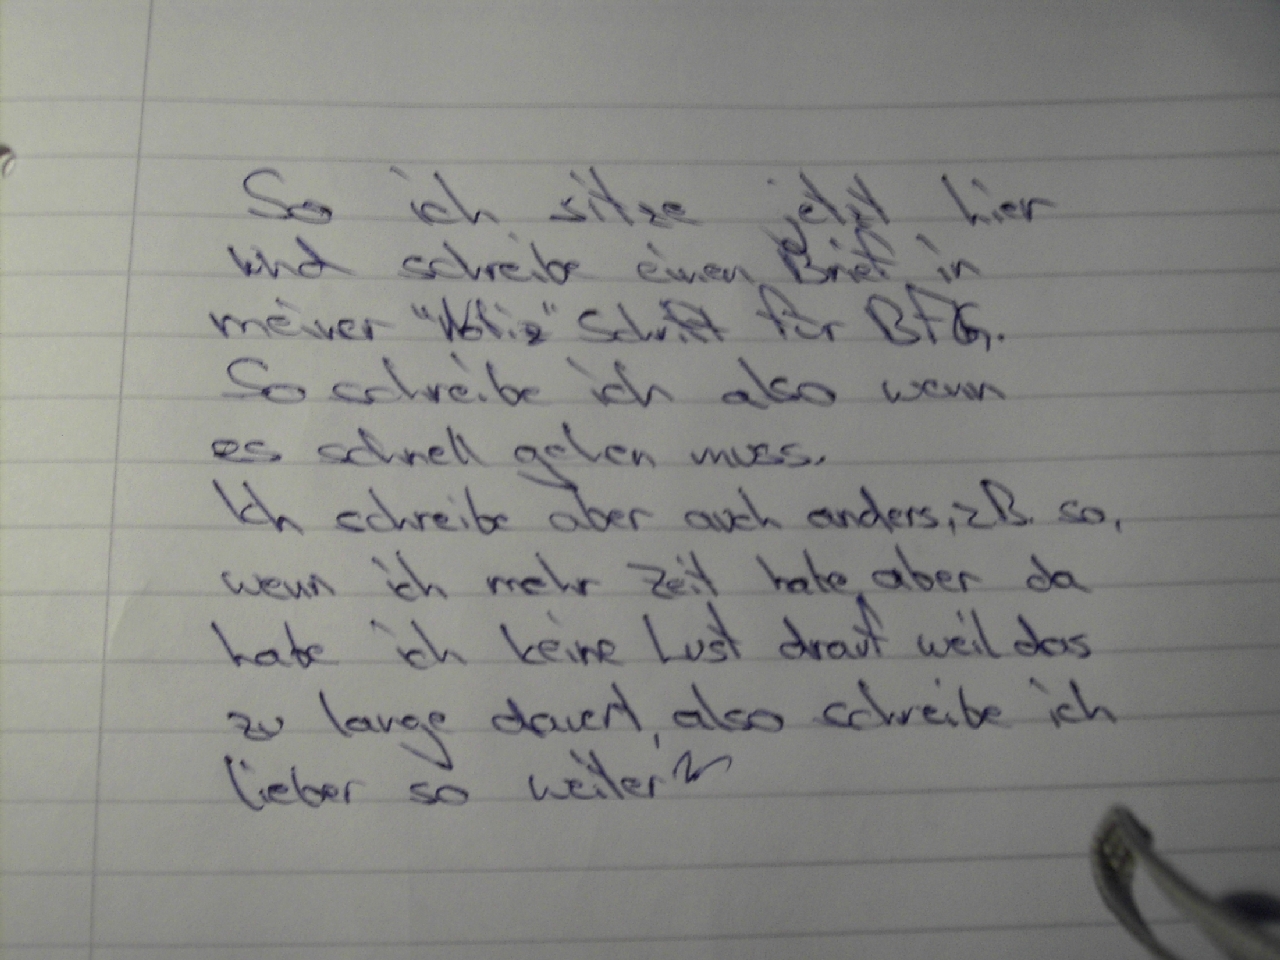 So ich sitze jetzt hier
und schreibe einen Brief in
meiner "Notiz" Schrift für BFG.
So schreibe ich also wenn
es schnell gehen muss.
Ich schreibe aber auch anders, zB. so,
wenn ich mehr Zeit habe, aber da
habe ich keine Lust drauf weil das
zu lange dauert, also schreibe ich
lieber so weiter